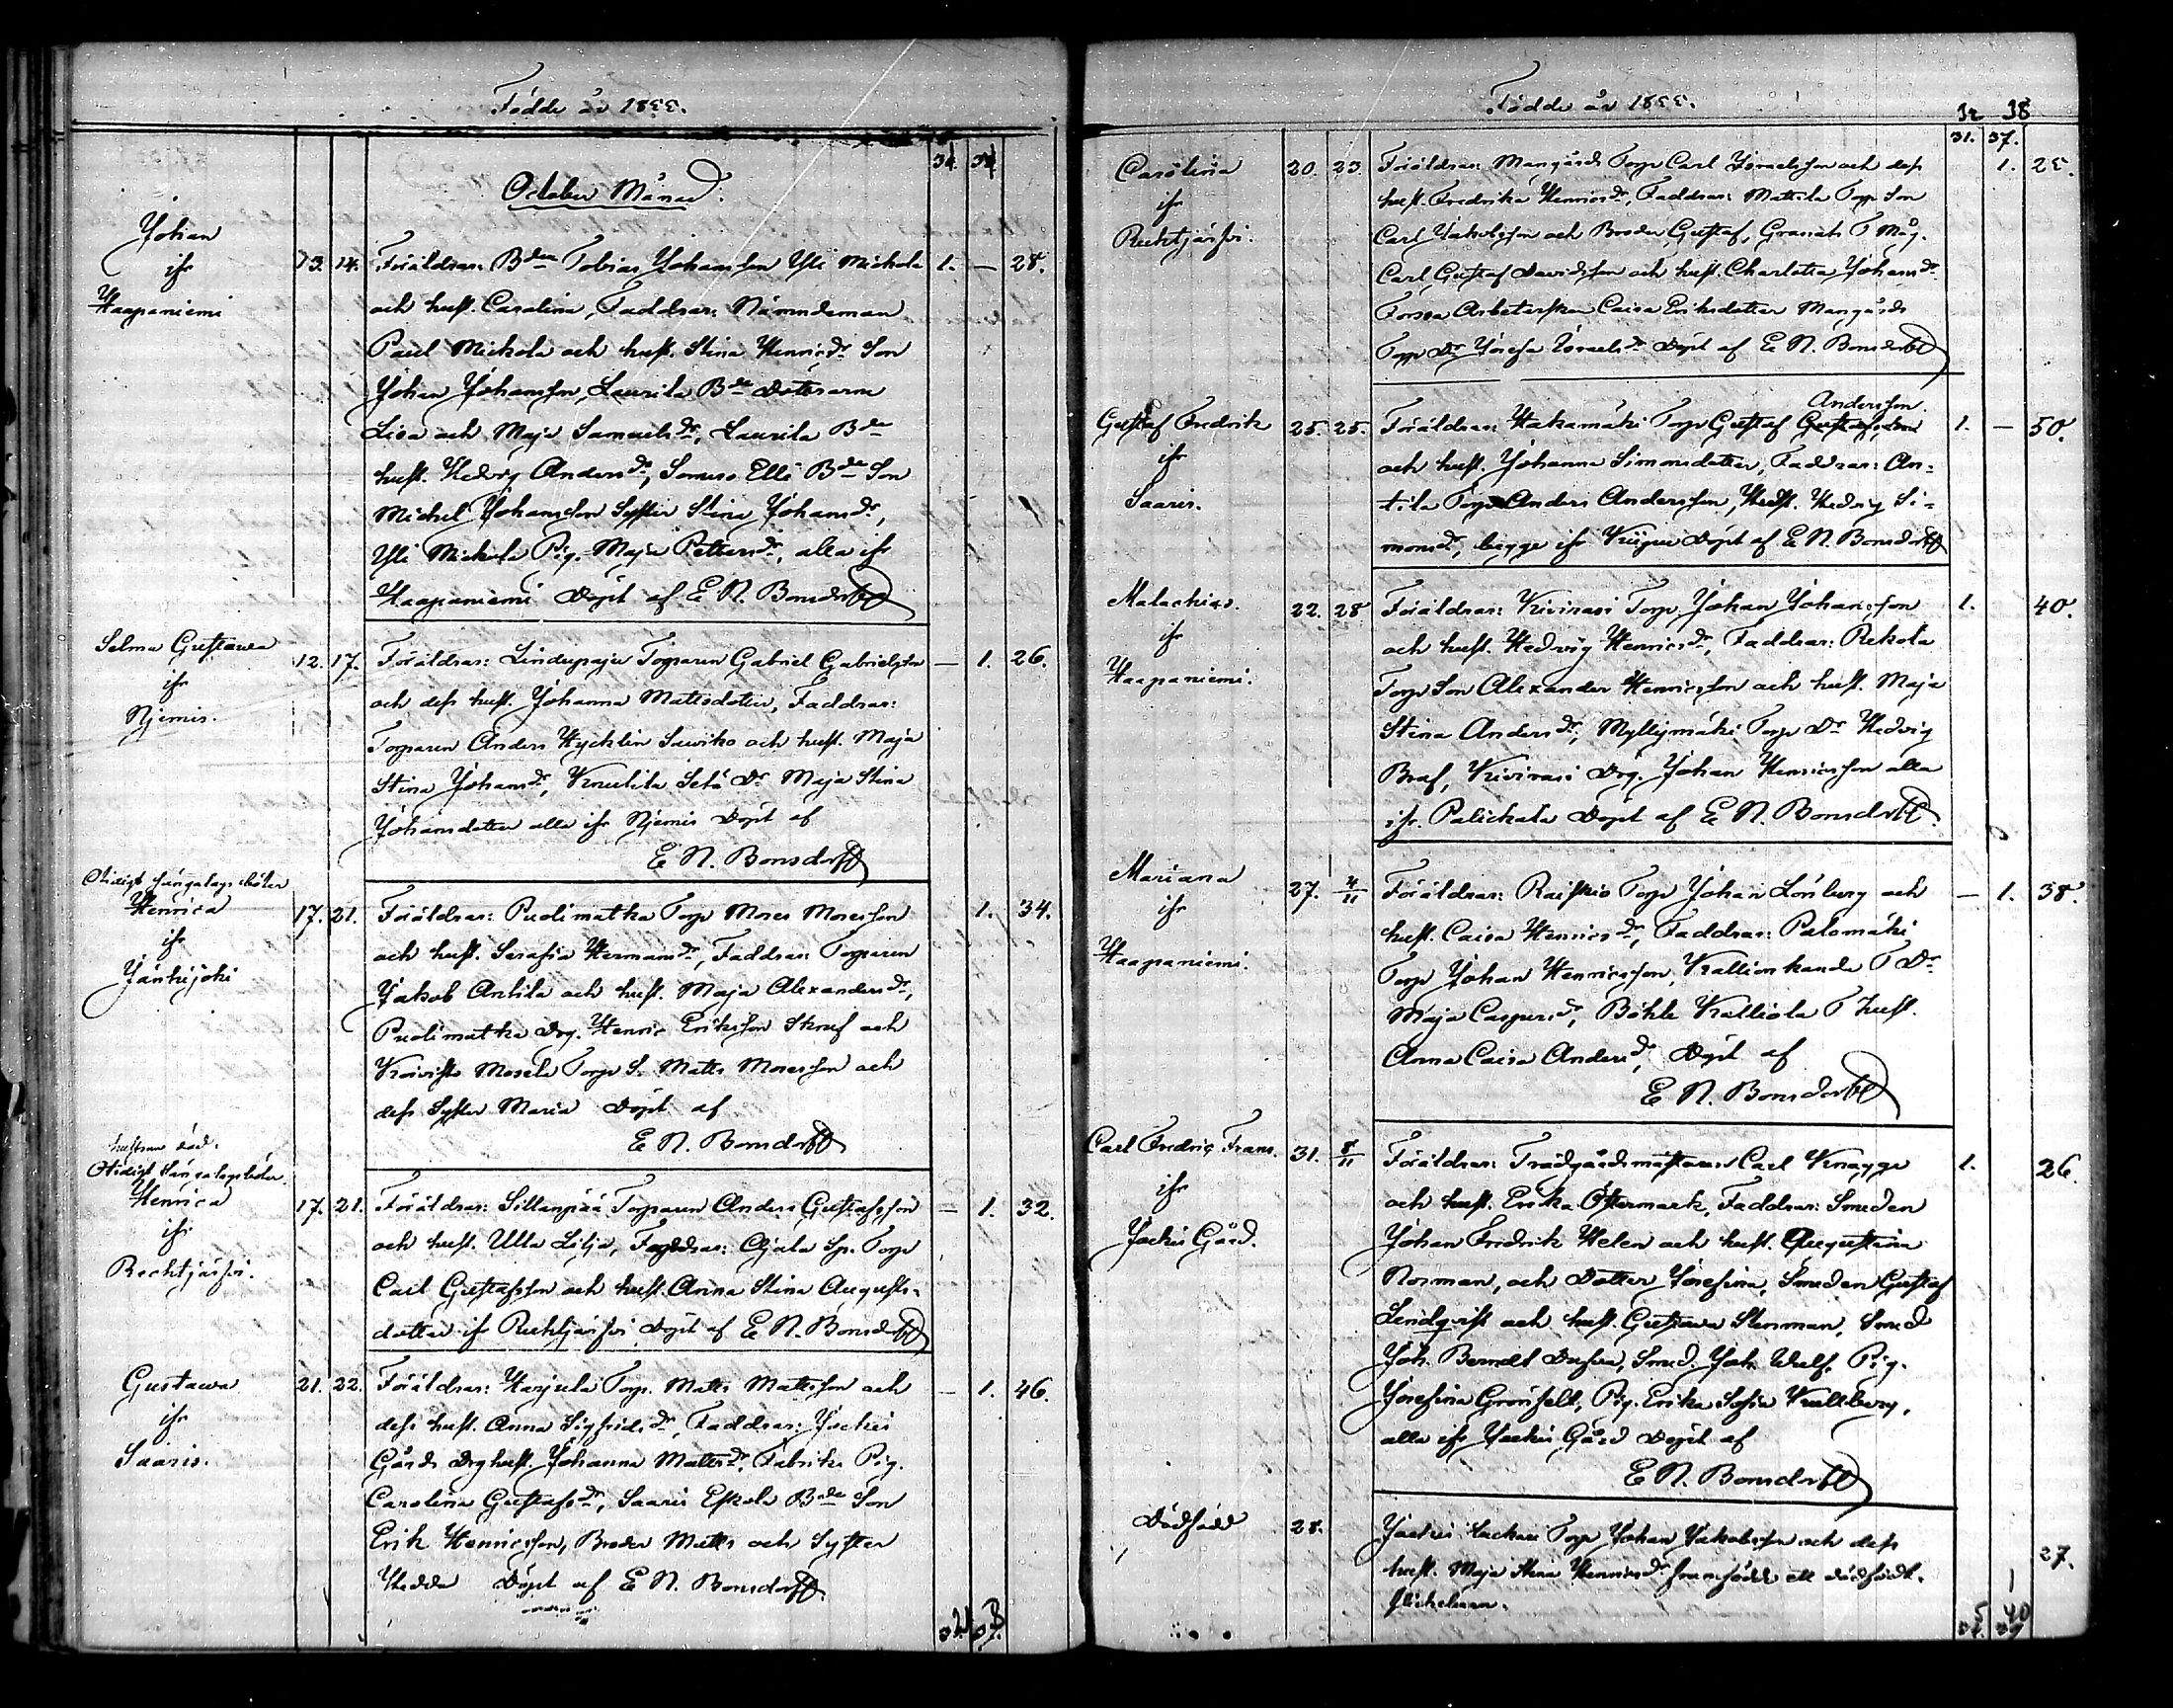 Födde år 1855.
October Månad.
Johan
ifr
Haapaniemi
13. 14. Föräldrar: Bden Tobias Johansson Yli Mickola 1. — 28.
och hust. Carolina, Faddrar: Nämndeman
Paul Mickola och hust. Stina Henricsdr Son
Johan Johansson, Laurila Bde Döttrarna
Lisa och Maja Samuelsdr, Laurila Bde
hust. Hedvig Andersdr, Elli Bde Son
Michel Johansson Syster Stina Johansdr,
Yli Mickola Pig. Maja Pettersdr, alla ifr
Haapaniemi Döpt af E N. Bonsdorff
Selma Gustawa
ifr
Njemis.
12. 17. Föräldrar: Torparen Gabriel Gabrielsson — 1. 26.
och dess hust. Johanna Mattsdotter, Faddrar:
Torparen Anders Hycklin och hust. Maja
Stina Johansdr, Knuutila Dr Maja Stina
Johansdotter alla ifr Njemis Döpt af
E N. Bonsdorff
Henrica
ifr
Jänhijoki
17. 21. Föräldrar: Puolimatka Torp Moses Mosesson 1. 34.
och hust. Serafia Hermansdr, Faddrar: Torparen
Jakob Antila och hust. Maja Alexandersdr,
Puolimatka Drg. Henric Eriksson och
Koivisto Torp S. Matts Mosesson och
dess Syster Maria Döpt af
E N. Bonsdorff
hustrun död.
Henrica
ifr
Rechtjärfvi.
17. 21. Föräldrar: Sillanpää Torparen Anders Gustafsson — 1. 32.
och hust. Ulla Lilja, Faddrar: Ojala Sp. Torp
Carl Gustafsson och hust. Anna Stina Augusts-
dotter ifr Rechtjärfvi Döpt af E N. Bonsdorff
Gustawa
ifr
Saaris.
21. 22. Föräldrar: Harjula Torp. Matts Mattsson och — 1. 46.
dess hust. Anna Sigfridsdr, Faddrar: Jockis
Gårds Drg hust. Johanna Mattsdr, Fabriks Pig.
Carolina Gustafsdr, Saaris Eskola Bde Son
Erik Henricsson, Broder Matts och Syster
Hedda Döpt af E N. Bonsdorff
Födde år 1855.
31. 37.
Carolina
ifr
Rechtjärfvi.
20. 23. Föräldrar: Mangårds Torp Carl Israelsson och dess 1. 25.
hust. Fredrika Henricsdr, Faddrar: Mattila Torp Son
Carl Jakobsson och Broder Gustaf, Måg.
Carl Gustaf Davidsson och hust. Charlotta Johansdr
Forssa Arbeterskan Caisa Eriksdotter Mangårds
Torp Dr Josefa Israelsdr Döpt af E N. Bonsdorff
Gustaf Fredrik
ifr
Saaris.
Andersson
25. 25. Föräldrar: Hakamäki Torp Gustaf 1. — 50.
och hust. Johanna Simonsdotter, Faddrar: An-
tila Torp Anders Andersson, Hust. Hedvig Si-
monsdr, bägge ifr Döpt af E N. Bonsdorff
Malachias.
ifr
Haapaniemi.
22. 28 Föräldrar: Torp. Johan Johansson 1. 40.
och hust. Hedvig Henricsdr, Faddrar: Rekola
Torp Son Alexander Henricsson och hust. Maja
Stina Andersdr, Myllymäki Torp Dr Hedvig
Braf, Drg. Johan Henricsson alla
ifr. Palickala Döpt af E N. Bonsdorff
Mariana
ifr
Haapaniemi.
27. 4/11 Föräldrar: Torp Johan Lönberg och — 1. 38.
hust. Caisa Henricsdr, Faddrar: Palomäki
Torp Johan Henricsson, T Dr
Maja Caspersdr, Kalliola T hust.
Anna Caisa Andersdr, Döpt af
E N. Bonsdorff
Carl Fredric Frans.
ifr
Jockis Gård.
31. 8/11 Föräldrar: Trädgårdsmästaren Carl Knagge 1. 26.
och hust. Erika Östermark, Faddrar: Smeden
Johan Fredrik Helen och hust. Augustina
Norman, och Dotter Josefina, Smeden Gustaf
Lindqvist och hust. Gustawa Stenman, Smed
Joh. Berndt Dufva, Smed. Joh. Wulf, Pig.
Josefina Grönfelt, Pig. Erika Sofia Kullberg,
alla ifr Jockis Gård Döpt af
E N. Bonsdorff
Dödfödd
28. Jockis Torp Johan Jakobsson och dess
hust. Maja Stina Henricsdr framfödde ett dödfödt 27.
flickebarn.